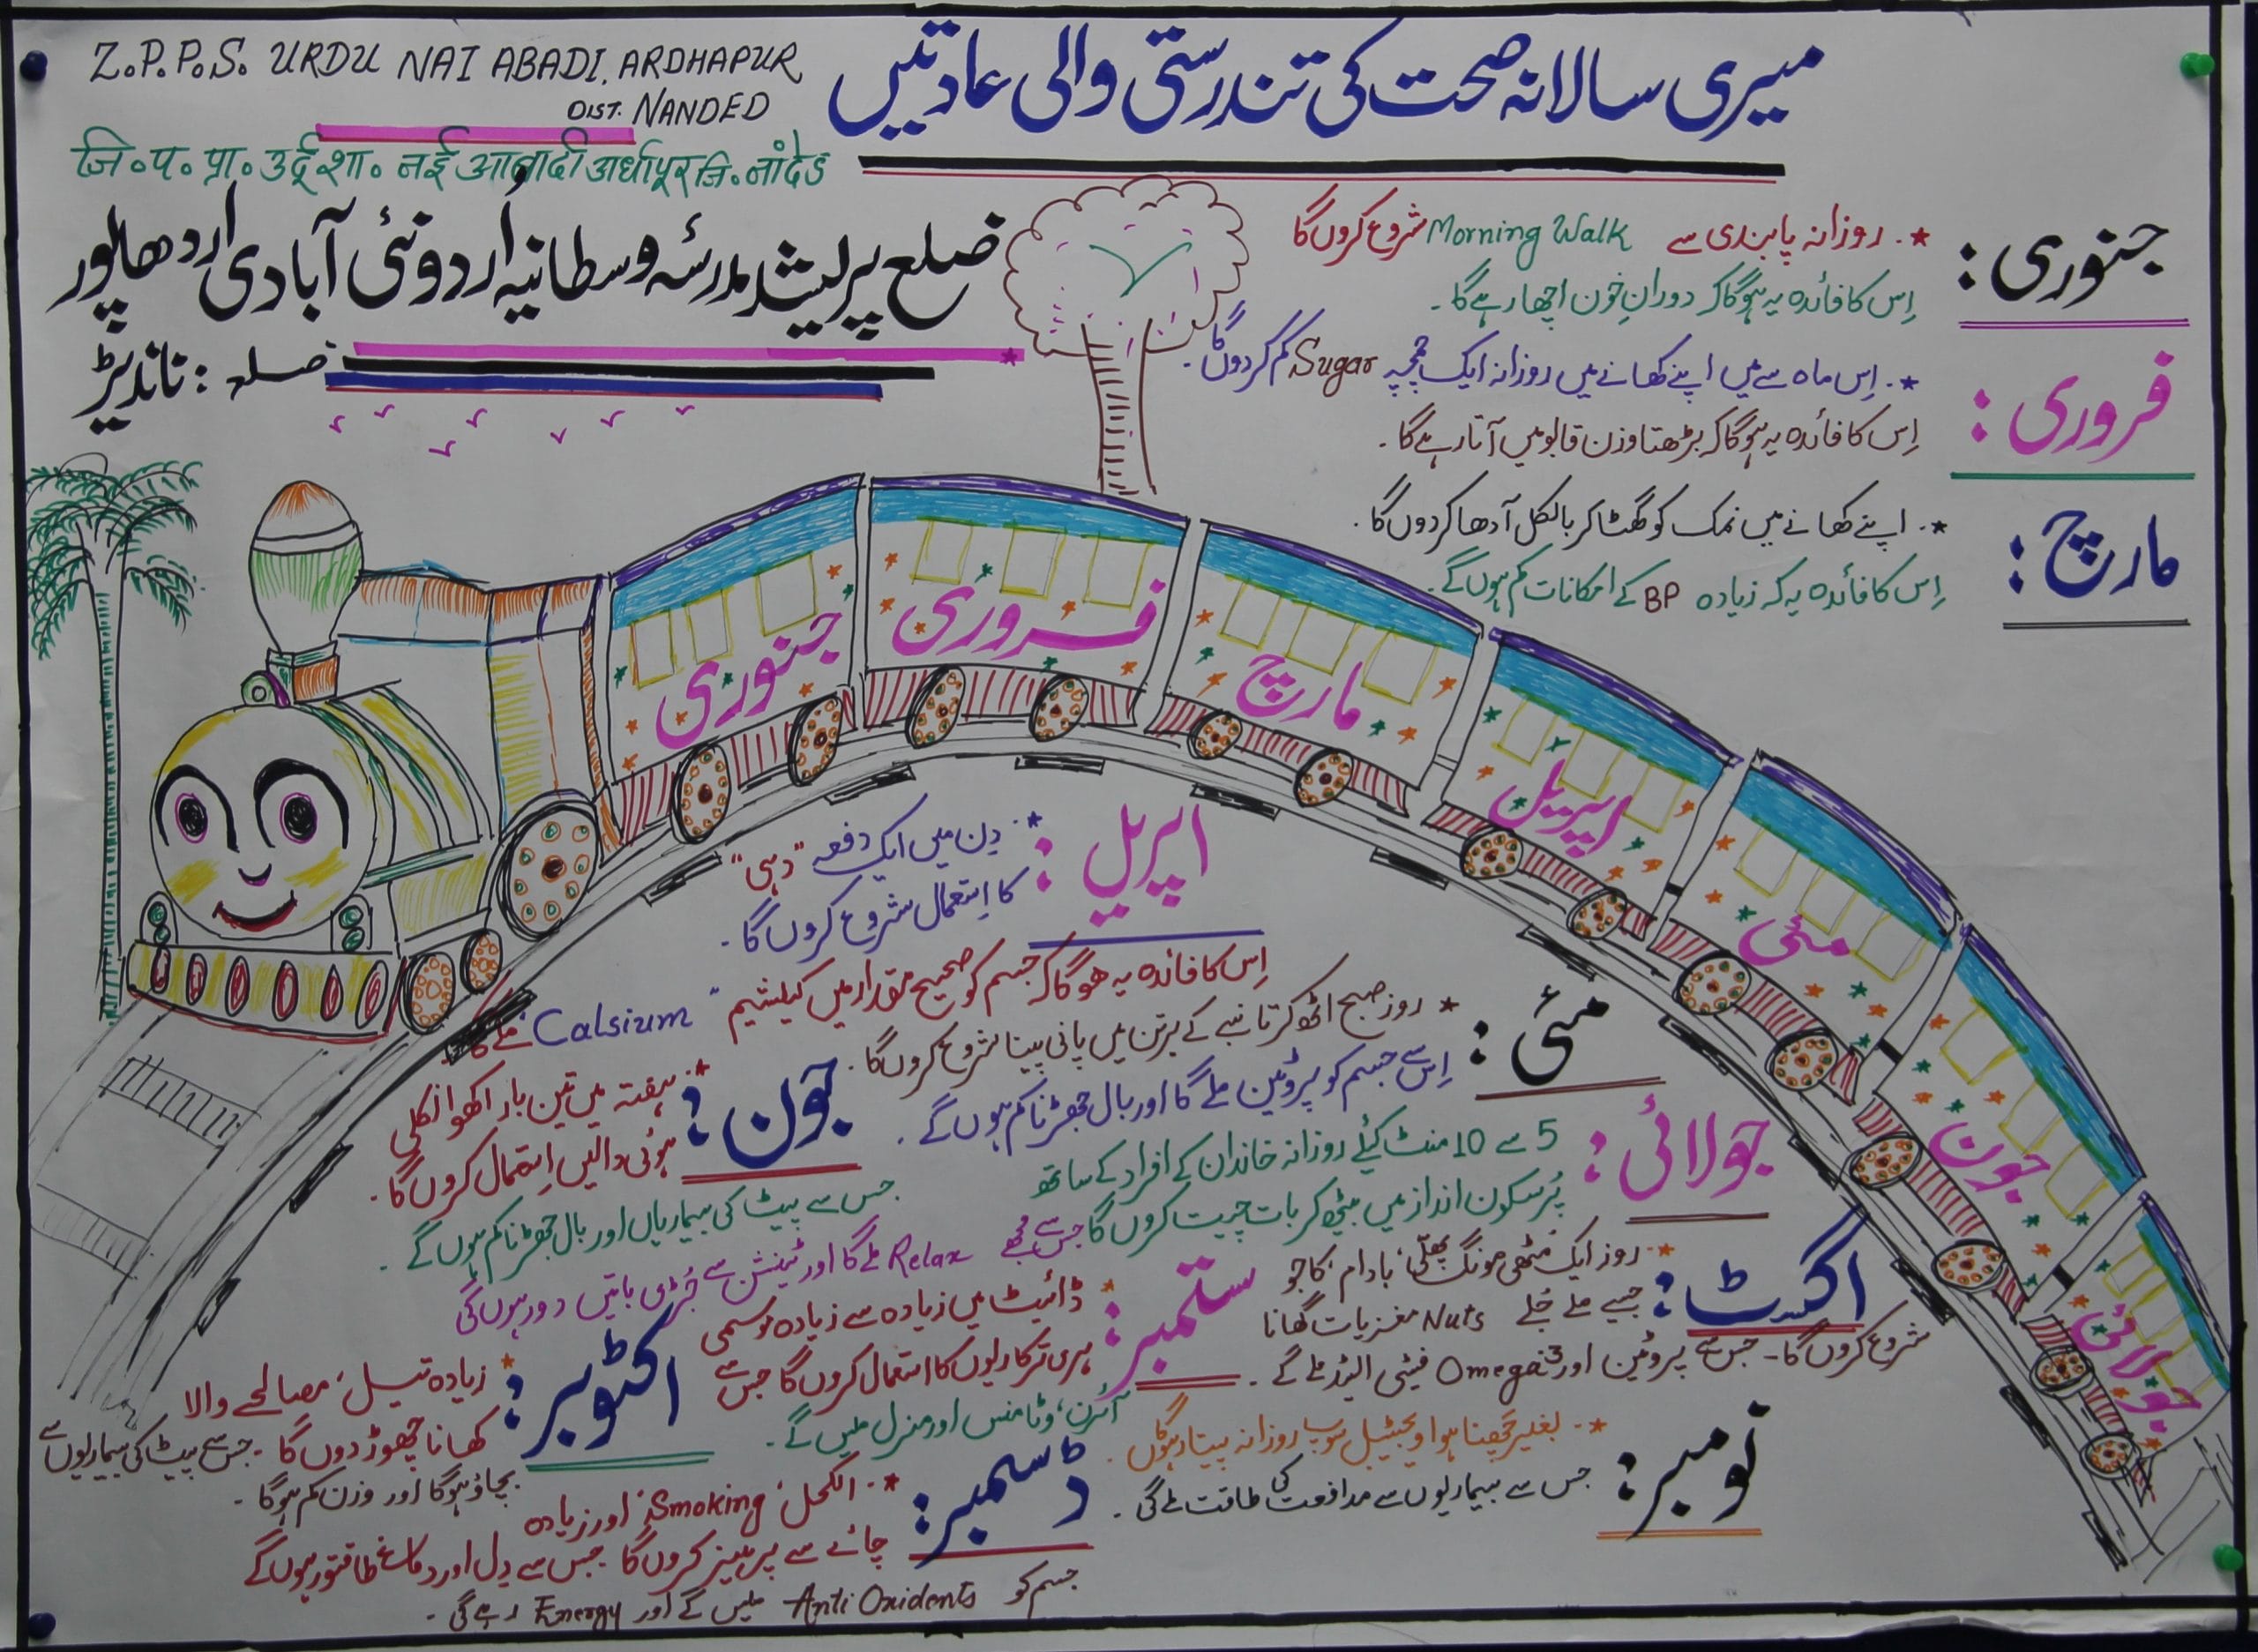 Z.P.P.S. URDU NAI ABADI, ARDHAPUR
DIST. NANDED
जि.प.प्रा. उर्दू शा. नई आबादी अर्धापूर जि. नांदेड
میری سالانہ صحت کی تندرستی والی عادتیں
ضلع پریشد مدرسۂ وسطانیہ اُردو نئی آبادی اردھاپور
ضلع : ناندیڑ
جنوری :
*. روزانہ پابندی سے Morning Walk شروع کروں گا
اِس کا فائدہ یہ ہوگا کہ دورانِ خون اچھا رہے گا۔
فروری :
*. اِس ماہ سے میں اپنے کھانے میں روزانہ ایک چمچہ Sugar کم کردوں گا۔
اِس کا فائدہ یہ ہوگا کہ بڑھتا وزن قابو میں آتا رہے گا۔
مارچ :
*. اپنے کھانے میں نمک کو گھٹا کر بالکل آدھا کردوں گا۔
اِس کا فائدہ یہ کہ زیادہ BP کے امکانات کم ہوں گے۔
جنوری
فروری
مارچ
اپریل
مئی
جون
جولائی
اپریل :
*. دِن میں ایک دفعہ "دہی"
کا اِستعمال شروع کروں گا۔
اِس کا فائدہ یہ ہوگا کہ جسم کو صحیح مقدار میں کیلشیم "Calsium" ملے گا۔
مئی :
* روز صبح اٹھ کر تانبے کے برتن میں پانی پینا شروع کروں گا۔
اِس سے جسم کو پروٹین ملے گا اور بال جھڑنا کم ہوں گے۔
جون :
*. ہفتہ میں تین بار اکھوا نکلی
ہوئی دالیں اِستعمال کروں گا۔
جس سے پیٹ کی بیماریاں اور بال جھڑنا کم ہوں گے۔
جولائی :
5 سے 10 منٹ کیلئے روزانہ خاندان کے افراد کے ساتھ
پُرسکون انداز میں بیٹھ کر بات چیت کروں گا جس سے مجھے Relax ملے گا اور ٹینشن سے جُڑی باتیں دور ہوں گی
اگسٹ :
*. روز ایک مُٹھی مونگ پھلّی، بادام، کاجو
جیسے ملے جُلے Nuts مغزیات کھانا
شروع کروں گا۔ جس سے پروٹین اور Omega-3 فیٹی ایسڈ ملے گے۔
ستمبر :
* ڈائیٹ میں زیادہ سے زیادہ موسمی
ہری ترکاریوں کا استعمال کروں گا جس سے
آئرن، وٹامنس اور منرل ملیں گے۔
اکتوبر :
* زیادہ تیل، مصالحے والا
کھانا چھوڑ دوں گا۔ جس سے پیٹ کی بیماریوں سے
بچاؤ ہوگا اور وزن کم ہوگا۔
نومبر :
*. بغیر چھنا ہوا ویجیٹیبل سوپ روزانہ پیتا رہوں گا۔
جس سے بیماریوں سے مدافعت کی طاقت ملے گی۔
ڈسمبر :
*. الکحل، 'Smoking' اور زیادہ
چائے سے پرہیز کروں گا جس سے دِل اور دماغ طاقتور ہوں گے
جسم کو Anti Oxidents ملیں گے اور Energy رہے گی۔